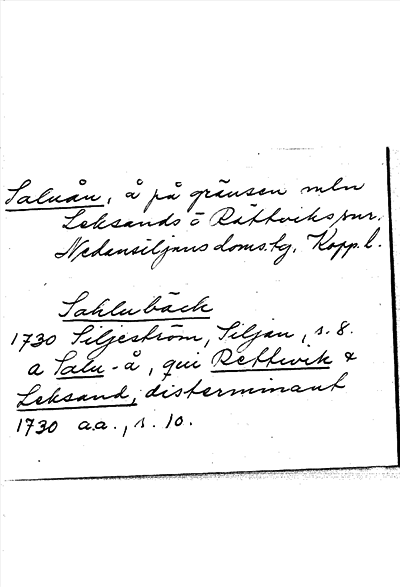 Saluån, å på gränsen mln
Leksands o Rättviks snr,
Nedansiljans doms.tg, Kopp. l.
Sahlubäck
1730 Siljeström, Siljan, s. 8.
a Salu-å, qui Rettwik &
Leksand, disterminant
1730 a.a., s. 10.